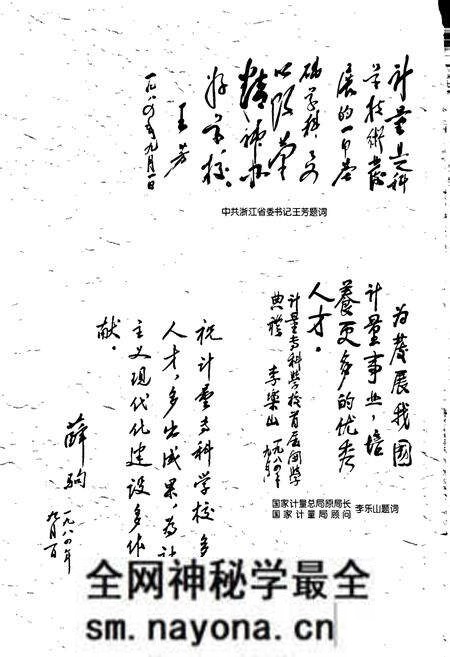 计量是科
学技術發
展的一个基
础学科，要
以改革
精神办
好学校。
王芳
一九八四年九月一日
中共浙江省委书记王芳题词
为發展我國
计量事业，培
養更多的优秀
人才。
计量专科学校首届開学
典禮 李樂山 一九八四年
九月
国家计量总局原局长
国家计量局顾问 李乐山题词
祝计量专科学校多
人才，多出成果，为社
主义现代化建设多作
献。
薛驹
一九八四年
九月
全网神秘学最全
sm.nayona.cn